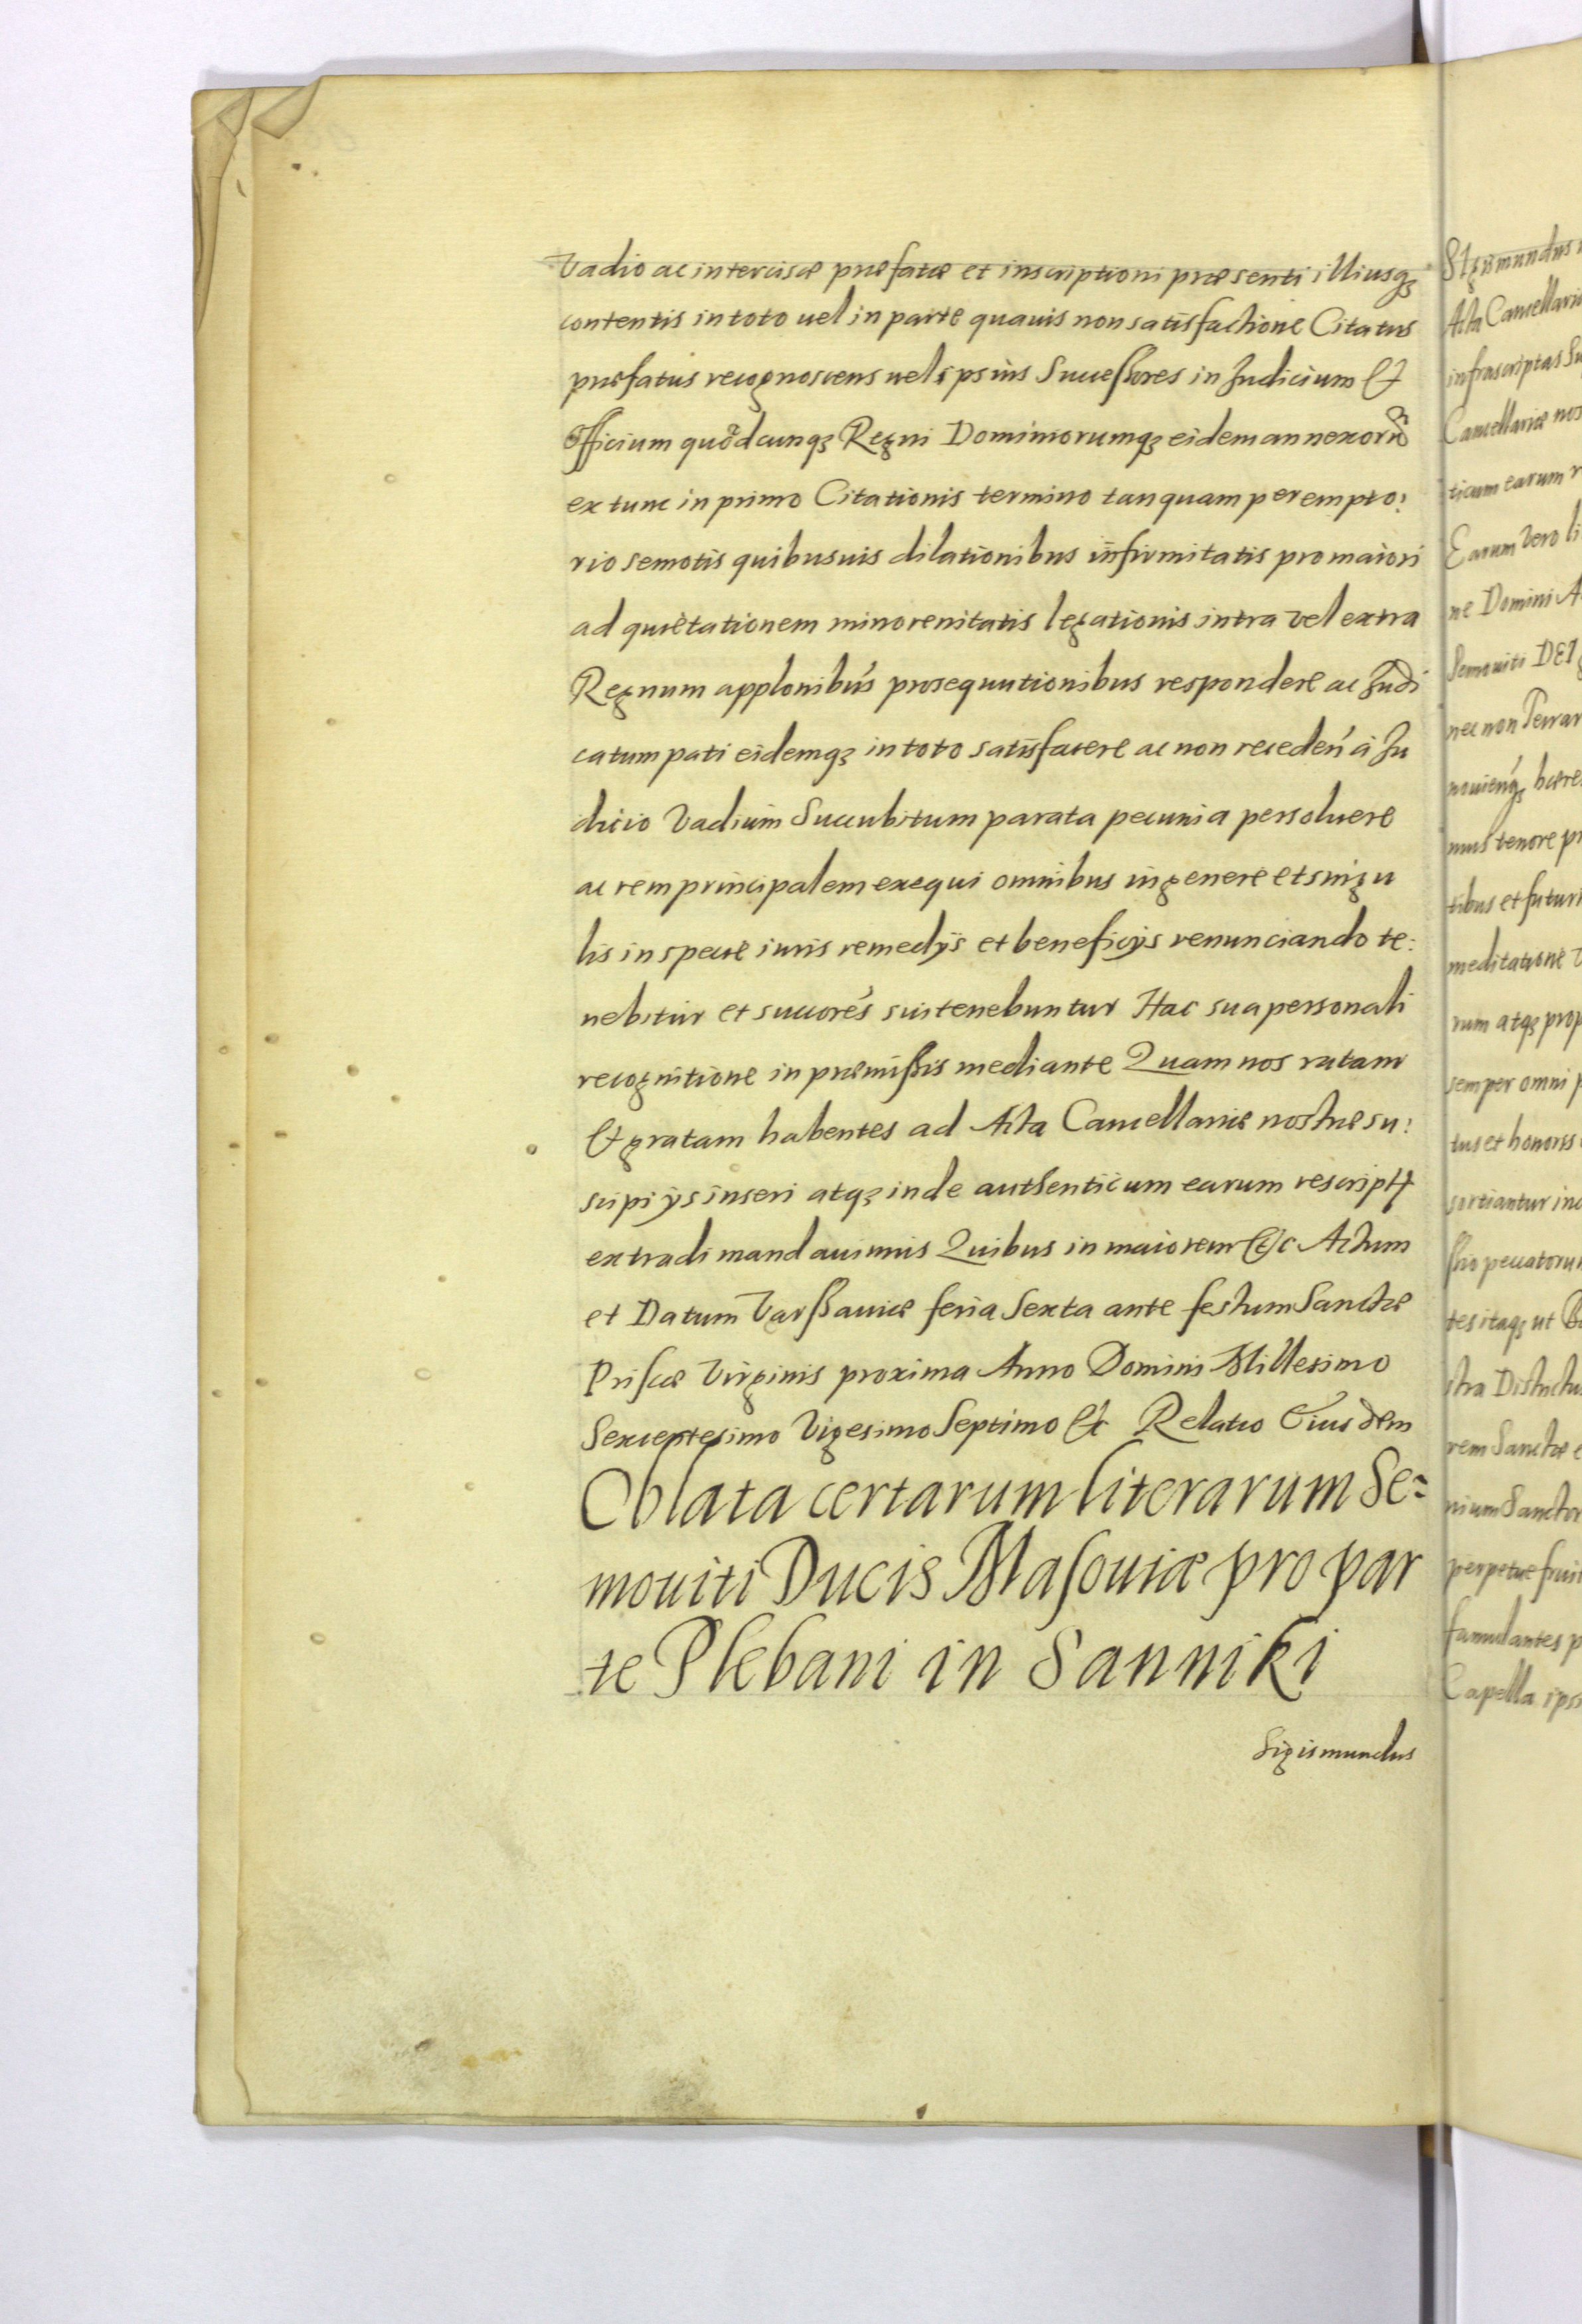 Vadio ac intercisæ præfatæ et inscriptioni præsenti illiusq3
contentis in toto uel in parte quauis non satisfactione Citatus
præfatus recognoscens uel ipsius Successores in Judicium Et
Officium quodcunq3 Regni Dominiorumq3 eidem annexorũ
ex tunc in primo Citationis termino tanquam perempto:
rio semotis quibusuis dilationibus infirmitatis pro maiori
ad quietationem minorenitatis legationis intra vel extra
Regnum applonibus prosequutionibus respondere ac Judi
catum pati eidemq3 in toto satisfacere ac non receden' à Ju
dicio Vadium Succubitum parata pecunia persoluere
ac rem principalem exequi omnibus in genere et singu
lis in specie iuris remedÿs et beneficÿs renunciando te:
nebitur et succores sui tenebuntur Hac sua personali
recognitione in præmissis mediante Quam nos ratam
Et gratam habentes ad Acta Cancellariæ nostræ su:
scipi ÿs inseri atq3 inde authenticum earum rescript
extradi mandauimus Quibus in maiorem Etc Actum
et Datum Varssauiæ feria Sexta ante festum Sanctæ
Priscæ Virginis proxima Anno Domini Millesimo
Sexcentesimo Vigesimo Septimo Etc Relatio Eiusdem
Oblata certarum literarum Se=
mouiti Ducis Masouiæ pro par
te Plebani in Sanniki
Sigismundus
Sigismundus
Acta Cancellari
infrascriptas Su
Cancellariæ nos
ticum earum r
Earum vero li
ne Domini A
Semouiti DEI g
nec non Terrar
nouienq3 hære
mus tenore pr
tibus et futuri
meditatione v
rum atq3 prop
semper omni p
tus et honoris
sortiantur inc
ssio peccatorum
tes itaq3 ut B
stra Districtu
rem Sanctæ e
nium Sanctor
perpetuæ frui
famulantes p
Capella ips